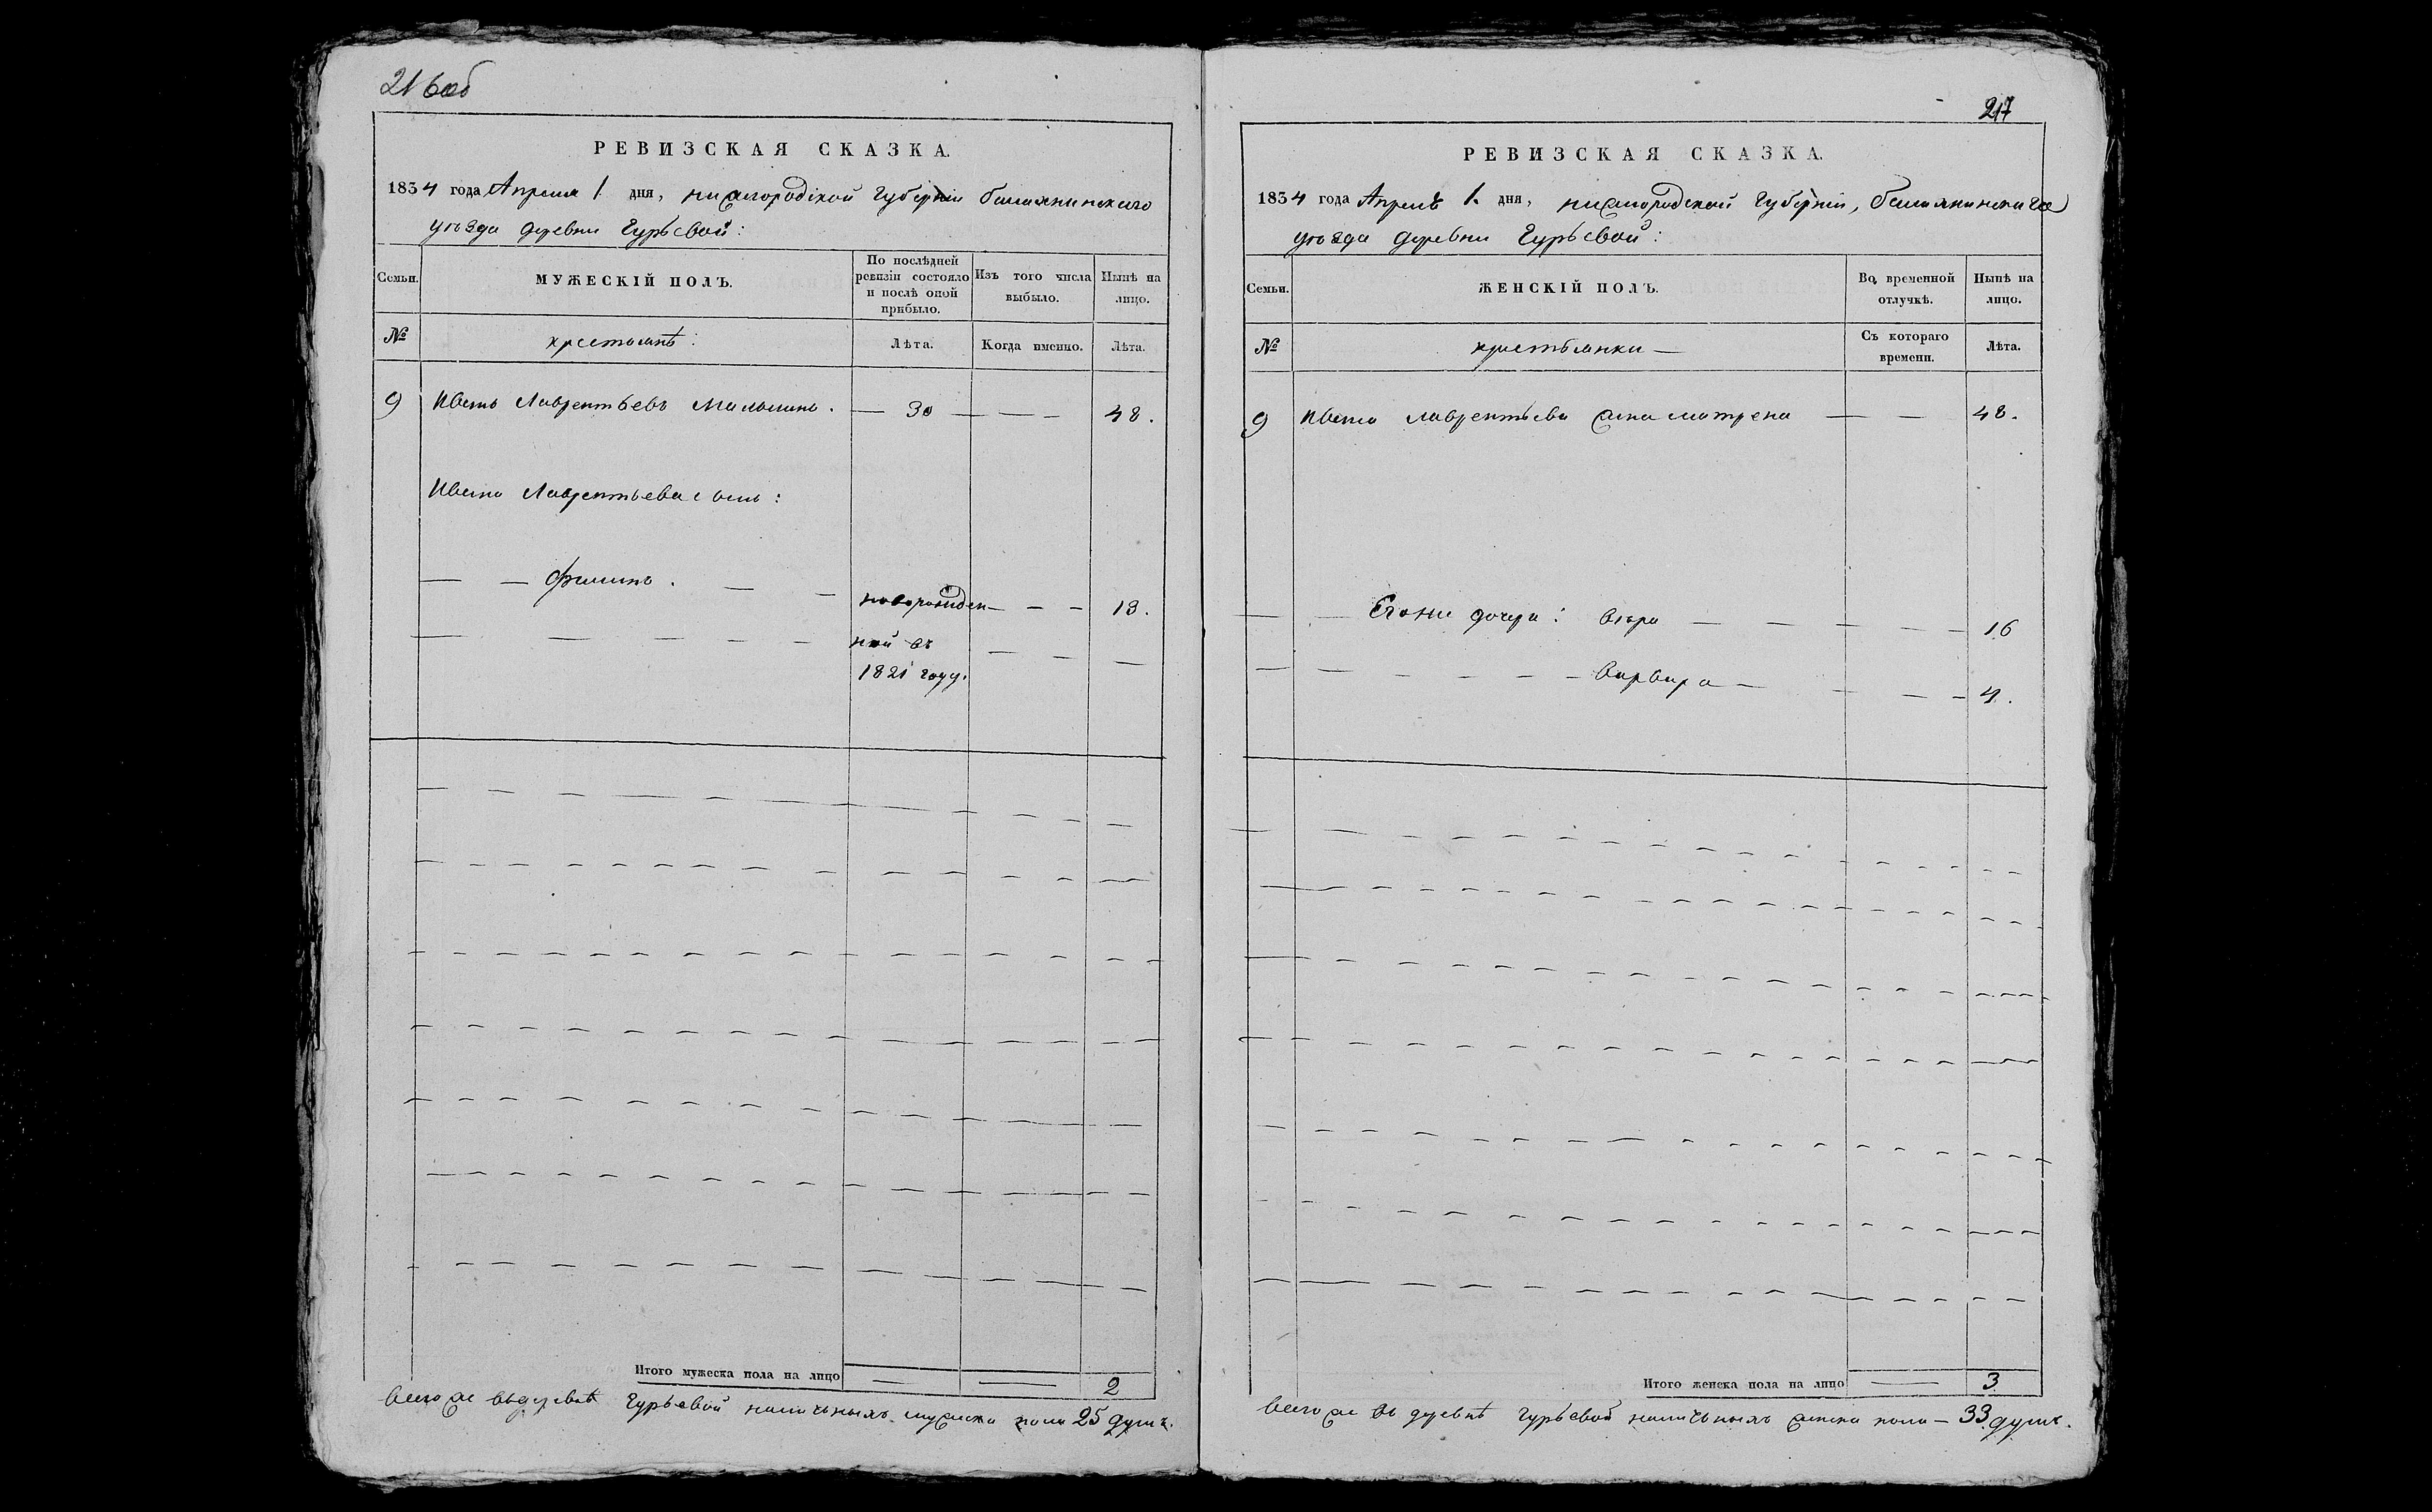 216об
РЕВИЗСКАЯ СКАЗКА.
1834 года Апреля 1 дня, нижегородской Губернии балахнинского
уѣзда деревни Гурьевой:
Семьи.
МУЖЕСКІЙ ПОЛЪ.
По послѣдней
ревизіи состояло
и послѣ оной
прибыло.
Изъ того числа
выбыло.
Нынѣ на
лицо.
№
крестьянъ:
Лѣта.
Когда именно.
Лѣта.
9 Иванъ Лаврентьевъ — 30 — — — 48.
Ивана Лаврентьева сынъ:
— — Филипъ. — — новорожден — — — 13.
ной въ
1821 году.
Итого мужеска пола на лицо 2
всего же въ деревнѣ Гурьевой наличныхъ мужска пола 25 душъ.
217
РЕВИЗСКАЯ СКАЗКА.
1834 года Апрелъ 1 дня, нижегородской Губерніи, балахнинскаго
уѣзда деревни Гурьевой:
Семьи.
ЖЕНСКІЙ ПОЛЪ.
Во временной
отлучкѣ.
Нынѣ на
лицо.
№
крестьянки —
Съ котораго
времени.
Лѣта.
9 Ивана лаврентьева жена матрена — — 48.
— — Егоже дочери: вѣра — — — — — 16
— — — — — — варвара — — — — 4.
Итого женска пола на лицо 3
всего же въ деревнѣ Гурьевой наличныхъ женска пола — 33 душъ.